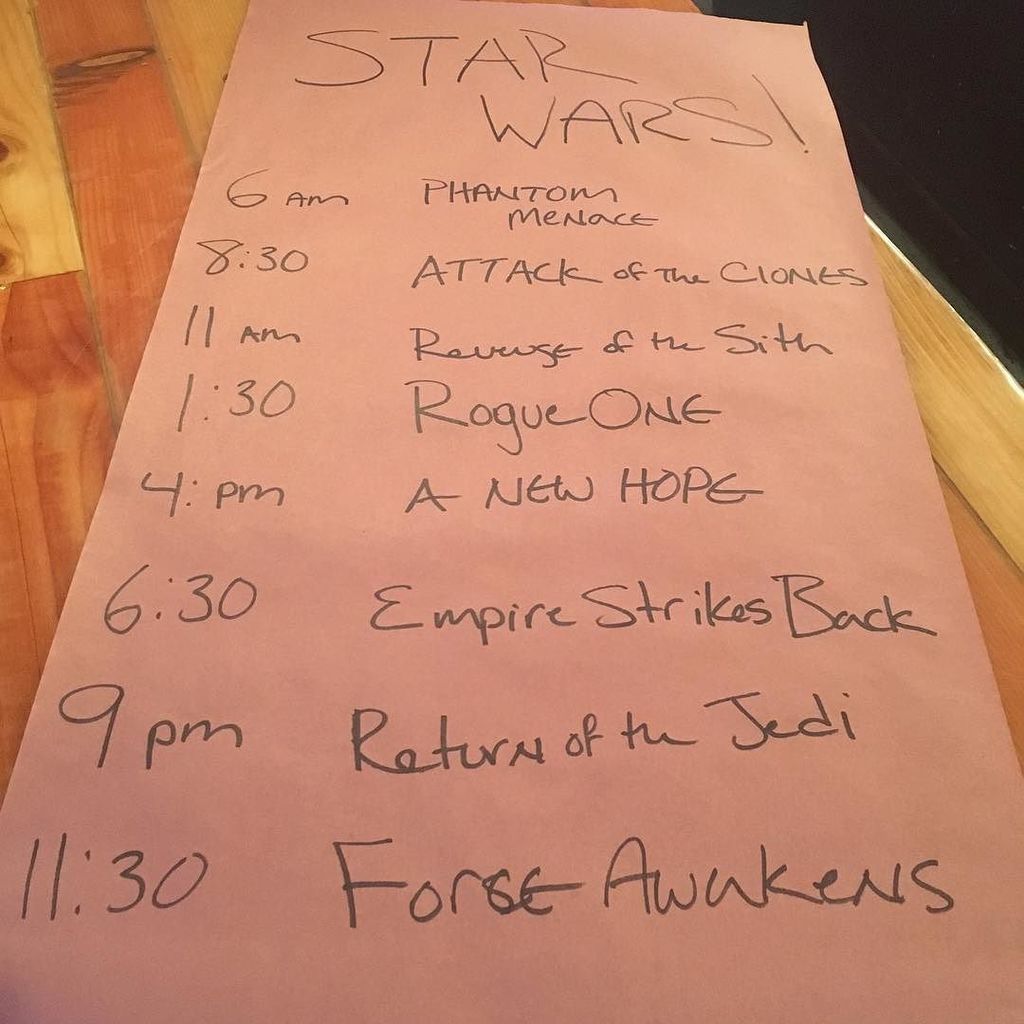 STAR
WARS!
6 AM PHANTOM
MENACE
8:30 ATTACK of THE CLONES
11 AM Revenge of the Sith
1:30 Rogue ONE
4: pm A NEW HOPE
6:30 Empire Strikes Back
9 pm Return of the Jedi
11:30 Force Awakens